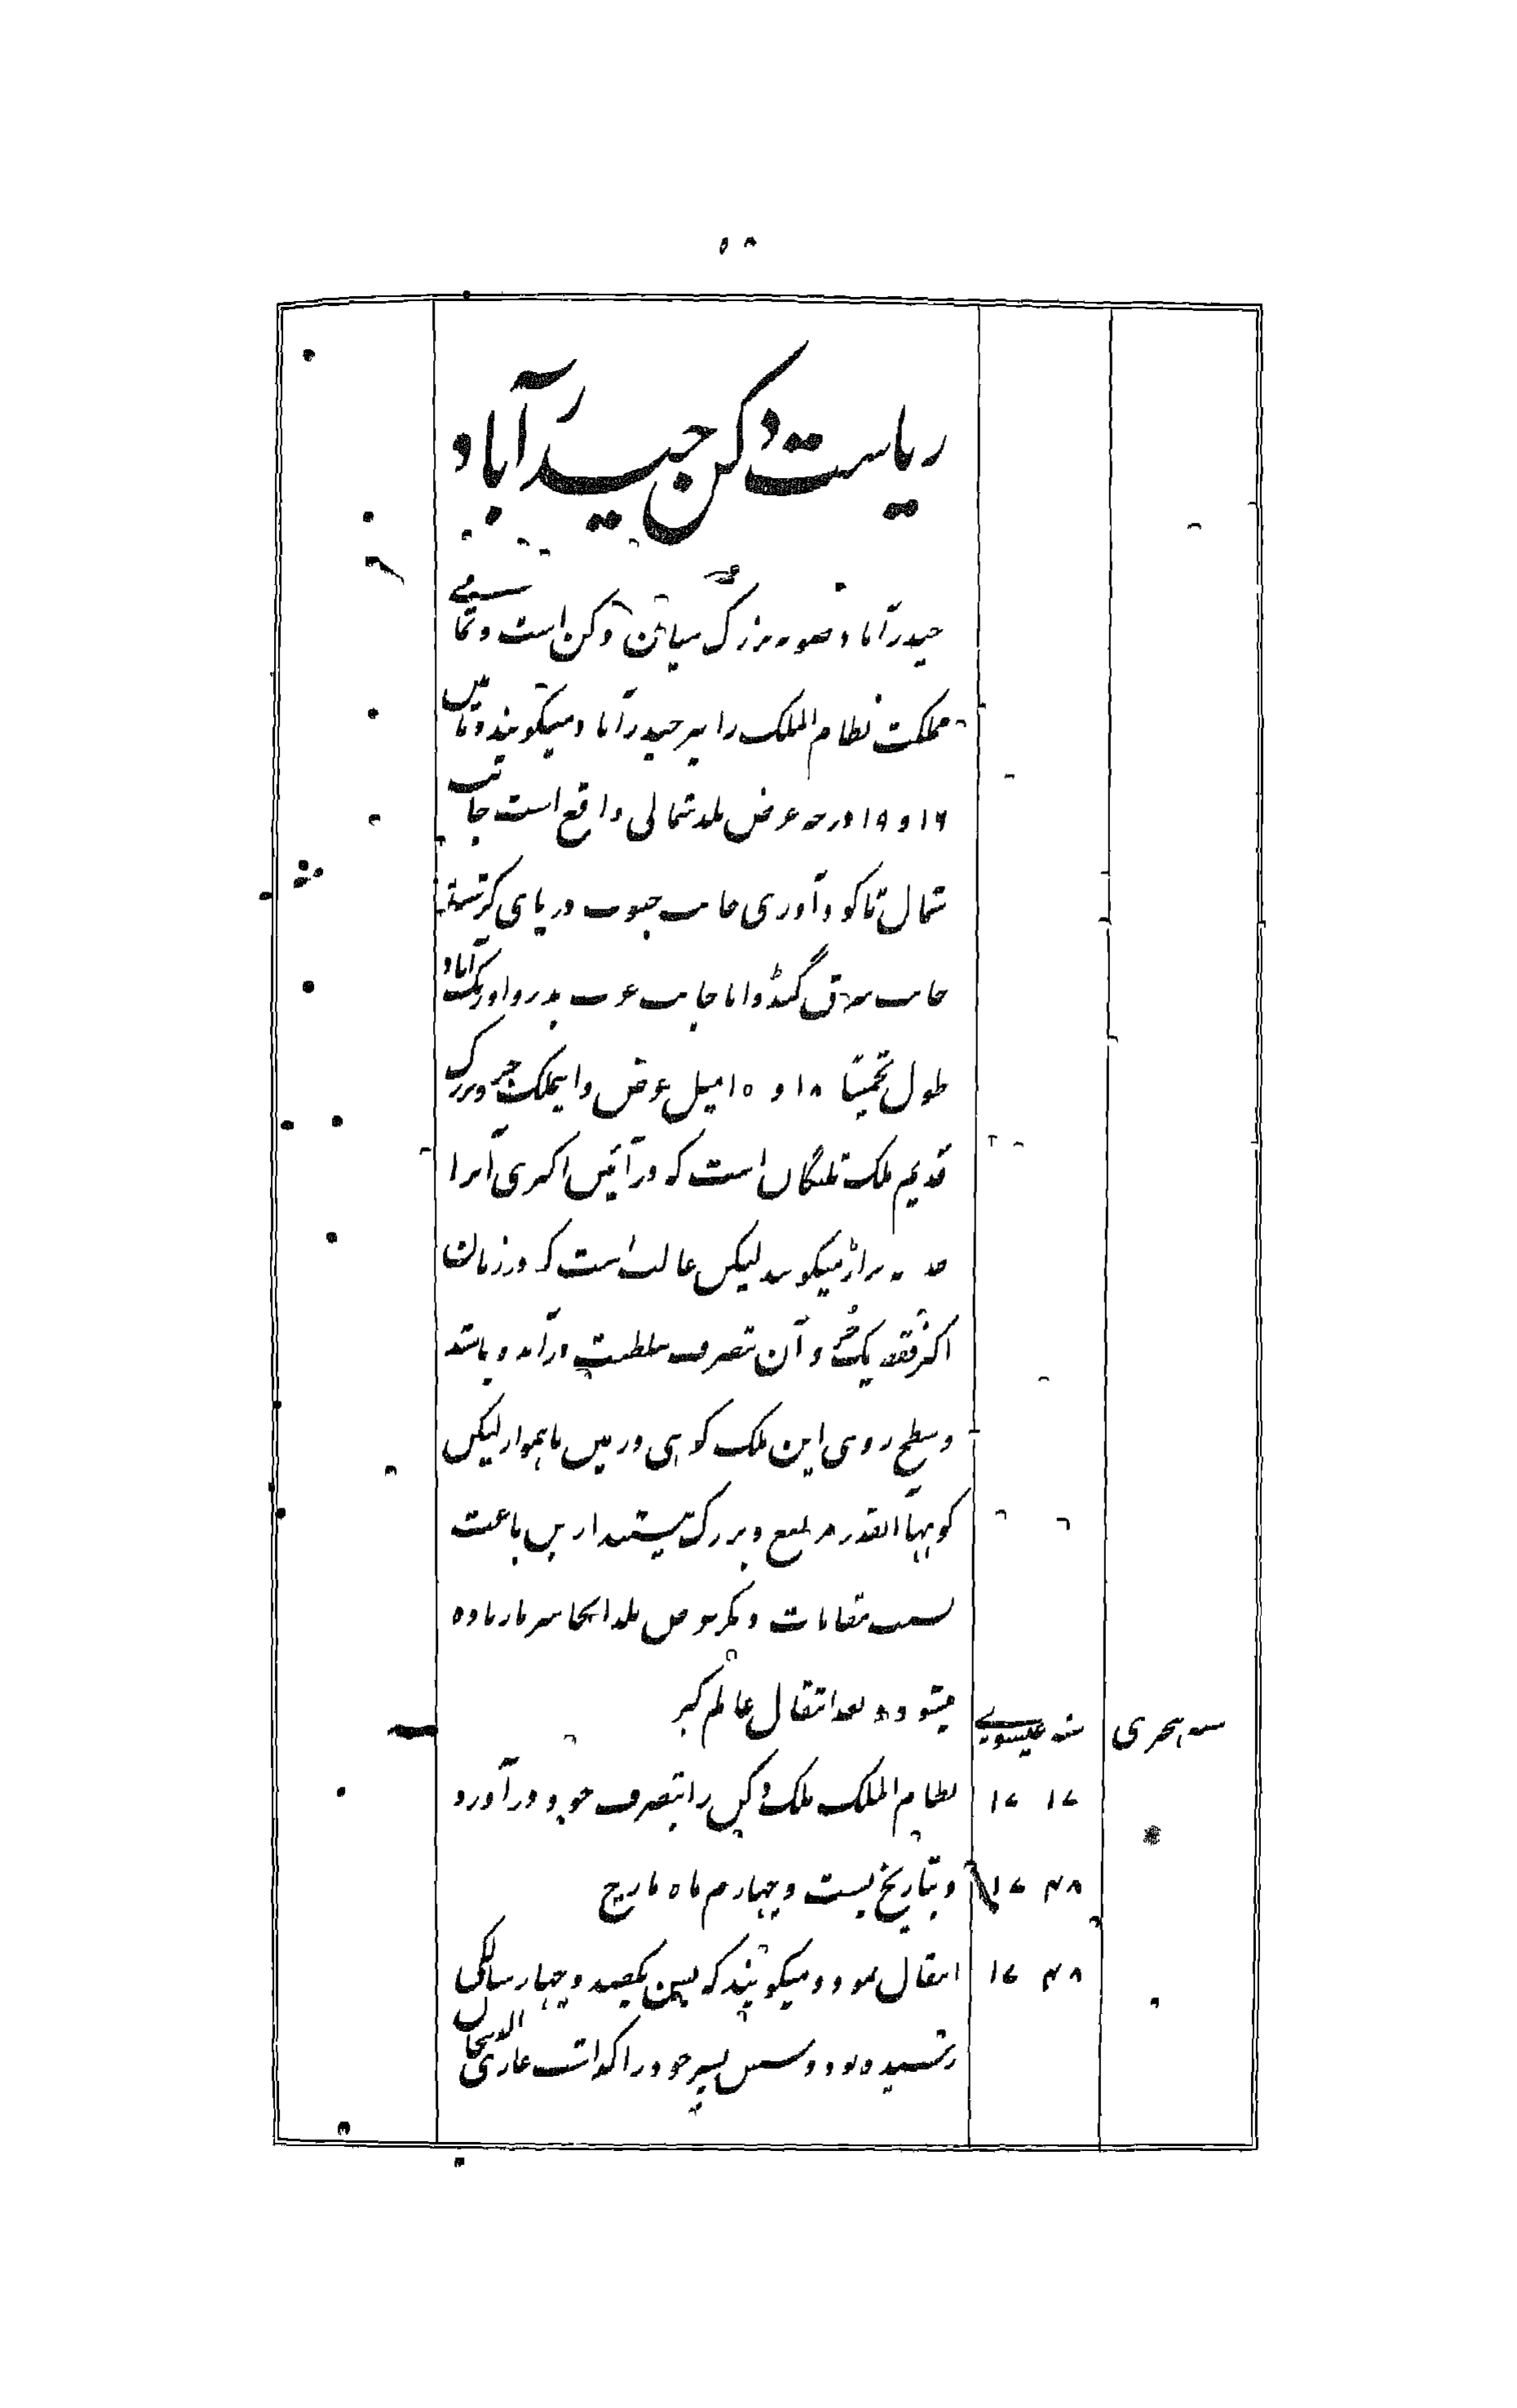 ریاست دکن حیدرآباد
حیدرآباد صوبه بزرگ میان دکن است و تمامے
مملکت نظام الملک را نیر حیدرآباد میگویند و مابین
۱۶ و ۱۹ درجه عرض بلد شمالی واقع است جانب
شمال تا گوداوری جانب جنوب دریای کرشنه
جانب شرق گنڈوانا جانب غرب بدر و اورنگ آباد
طول تخمیناً ۱۸ و ۱۵ میل عرض و اینملک جزو بزرگ
قدیم ملک تلنگان است که در آئین اکبری آنرا
برار میگویند لیکن غالب است که در زمان
اکبر فقط یک جزو آن بتصرف سلطنت درآمده باشد
و سطح روی این ملک کوهی و زمین ناهموار لیکن
کوهها آنقدر مرتفع و بزرگ نیستند ازین باعث
نسبت مقامات دیگر عرض بلد اینجا سرما زیاده
میشود و بعد انتقال عالم گیر
سنه هجری سنه عیسوی
۱۷۱۷ نظام الملک ملک دکن را بتصرف خود درآورد
۱۷۴۸ و بتاریخ بیست و چهارم ماه مارچ
۱۷۴۸ انتقال نمود و میگویند که بسن یکصد و چهار سالگی
رسیده بود و شش پسر خود را گذاشت غازی الدینخان